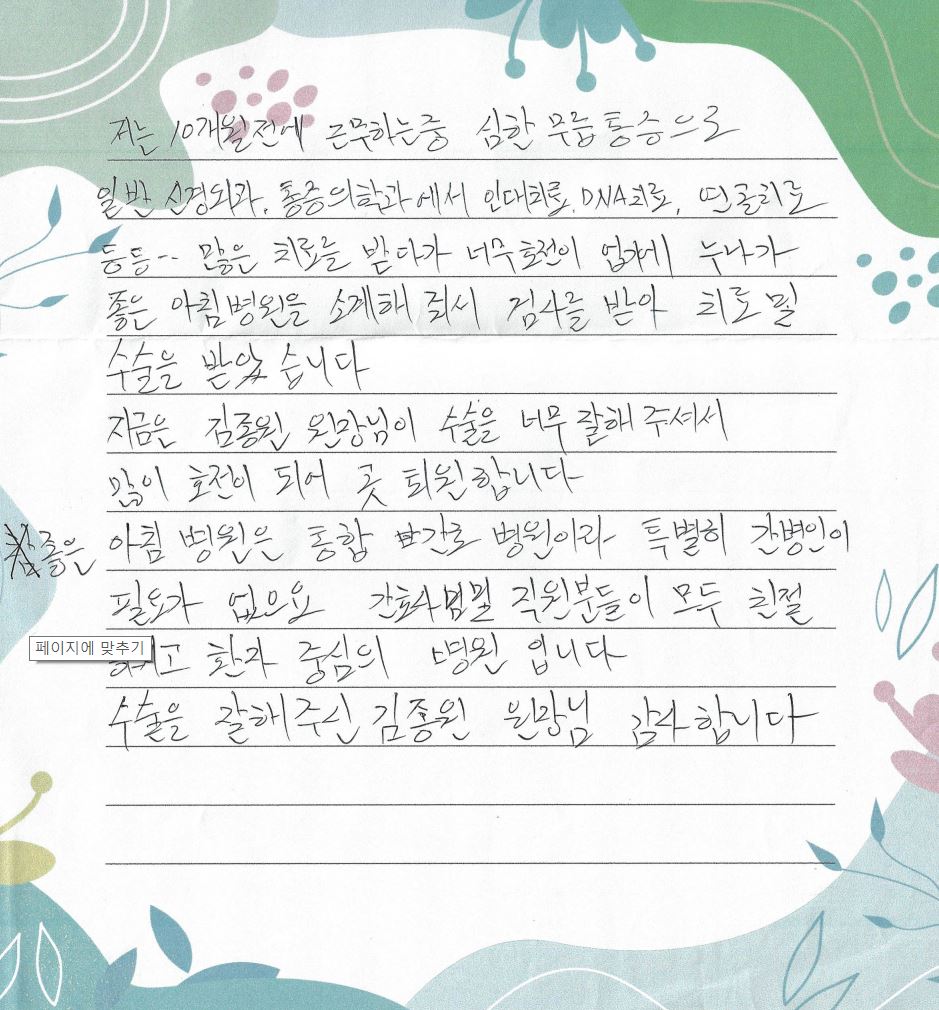 저는 10개월전에 근무하는중 심한 무릎통증으로
일반 신경외과, 통증의학과에서 인대치료, DNA치료, 연골치료
등등.. 많은 치료를 받다가 너무호전이 업기에 누나가
좋은 아침병원을 소개해 줘서 검사를 받아 치료 및
수술을 받았습니다
지금은 김종원 원장님이 수술을 너무 잘해 주셔서
많이 호전이 되어 곳 퇴원합니다
좋은 아침 병원은 통합 간호 병원이라 특별히 간병인이
필요가 없으요 간호사및 직원분들이 모두 친절
페이지에 맞추기
하시고 환자 중심의 병원 입니다
수술을 잘해주신 김종원 원장님 감사합니다